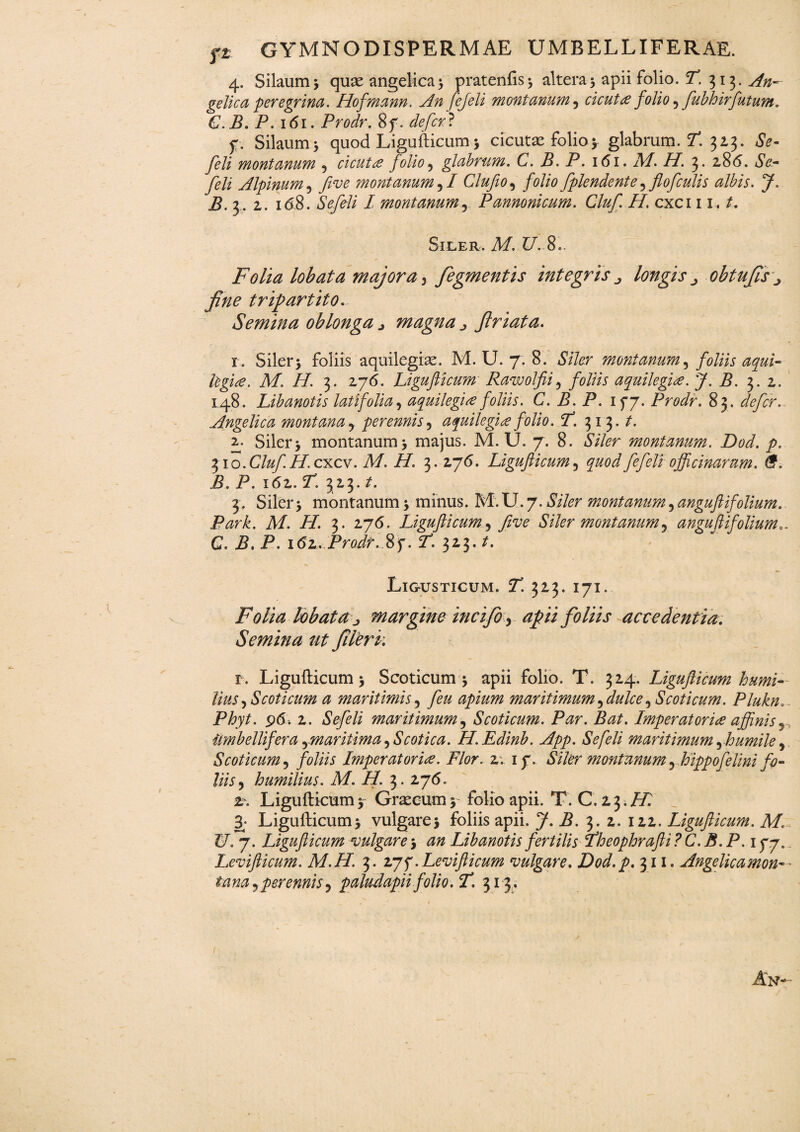 52 GYMNODISPERMAE UMBELLIFERAE.
4. Silaum; quæ angelica; pratenſis; altera; apii folio. T. 313. An-
gelica peregrina. Hofmann. An ſeſeli montanum, cicutæ folio, ſubhirſutum.
C. B. P. 161. Prodr. 85. deſcr?
5. Silaum; quod Liguſticum; cicutæ folio; glabrum. T. 323. Se-
ſeli montanum, cicutæ folio, glabrum. C. B. P. 161. M. H. 3. 286. Se-
ſeli Alpinum, ſive montanum, I Cluſio, folio ſplendente, floſculis albis. J.
B. 3. 2. 168. Seſeli I montanum, Pannonicum. Cluſ. H. CXCIII. t.
SILER. M. U. 8.
Folia lobata majora, ſegmentis integris, longis, obtuſis,
ſine tripartito.
Semina oblonga, magna, ſtriata.
1. Siler; foliis aquilegiæ. M. U. 7. 8. Siler montanum, foliis aqui-
legiæ. M. H. 3. 276. Liguſticum Rawolfii, foliis aquilegiæ. J. B. 3. 2.
148. Libanotis latifolia, aquilegiæ foliis. C. B. P. 157. Prodr. 83. deſcr.
Angelica montana, perennis, aquilegiæ folio. T. 313. t.
2. Siler; montanum; majus. M. U. 7. 8. Siler montanum. Dod. p.
310. Cluſ. H. CXCV. M. H. 3. 276. Liguſticum, quod ſeſeli officinarum. C.
B. P. 162. T. 323. t.
3. Siler; montanum; minus. M. U. 7. Siler montanum, anguſtifolium.
Park. M. H. 3. 276. Liguſticum, ſive Siler montanum, anguſtifolium.
C. B. P. 162. Prodr. 85. T. 323. t.
LIGUSTICUM. T. 323. 171.
Folia lobata, margine inciſo, apii foliis accedentia.
Semina ut ſileri.
1. Liguſticum; Scoticum; apii folio. T. 324. Liguſticum humi-
lius, Scoticum a maritimis, ſeu apium maritimum, dulce, Scoticum. Plukn.
Phyt. 96. 2. Seſeli maritimum, Scoticum. Par. Bat. Imperatoriæ affinis,
umbellifera, maritima, Scotica. H. Edinb. App. Seſeli maritimum, humile,
Scoticum, foliis Imperatoriæ. Flor. 2. 15. Siler montanum, hippoſelini fo-
liis, humilius. M. H. 3. 276.
2. Liguſticum; Græcum; folio apii. T. C. 23. H.
3. Liguſticum; vulgare; foliis apii. J. B. 3. 2. 122. Liguſticum. M.
U. 7. Liguſticum vulgare; an Libanotis fertilis Theophraſti? C. B. P. 157.
Leviſticum. M. H. 3. 275. Leviſticum vulgare. Dod. p. 311. Angelica mon-
tana, perennis, paludapii folio. T. 313.
AN-